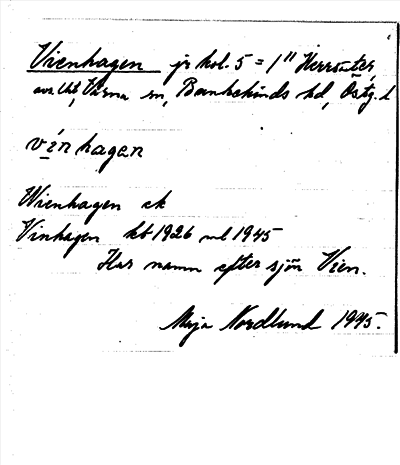 Vienhagen jr kol. 5 = 1" Herrsäter,
Värna sn, Bankekinds hd, Östg. l
vinhagen
Wienhagen ek
Vinhagen kb 1926 ml 1945
Har namn efter sjön Vien.
Maja Nordlund 1945.